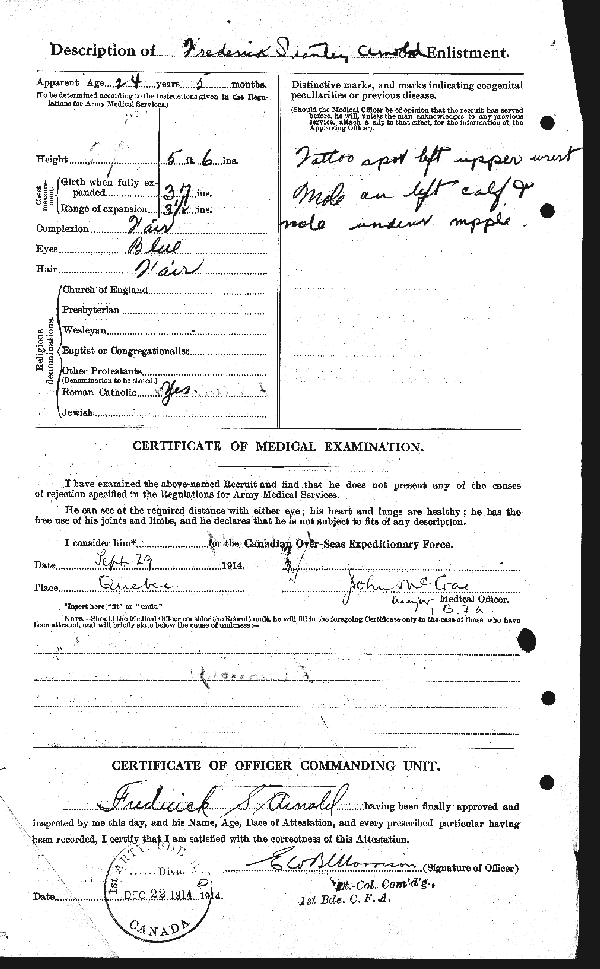 Description of Frederick Stanley Arnold Enlistment.
Apparent Age 24 years 5 months.
(To be determined according to the instructions given in the Regu-
lations for Army Medical Services.)
Height 5 ft 6 ins.
Chest measurement
Girth when fully ex-
panded 37 ins.
Range of expansion 3½ ins.
Complexion Fair
Eyes Blue
Hair Fair
Religious denominations.
Church of England
Presbyterian
Wesleyan
Baptist or Congregationalist
Other Protestants
(Denomination to be stated.)
Roman Catholic Yes.
Jewish
Distinctive marks, and marks indicating congenital
peculiarities or previous disease.
(Should the Medical Officer be of opinion that the recruit has served
before, he will, unless the man acknowledges to any previous
service, attach a slip to that effect, for the information of the
Approving Officer).
Tattoo spot left upper wrist
Mole on left calf &
mole under nipple.
CERTIFICATE OF MEDICAL EXAMINATION.
I have examined the above-named Recruit and find that he does not present any of the causes
of rejection specified in the Regulations for Army Medical Services.
He can see at the required distance with either eye; his heart and lungs are healthy; he has the
free use of his joints and limbs, and he declares that he is not subject to fits of any description.
I consider him* for the Canadian Over-Seas Expeditionary Force.
Date Sept 29 1914.
Place Quebec
John McCrae
Major Medical Officer.
*Insert here "fit" or "unfit."
NOTE.—Should the Medical Officer consider the Recruit unfit, he will fill in the foregoing Certificate only in the case of those who have
been attested, and will briefly state below the cause of unfitness:—
CERTIFICATE OF OFFICER COMMANDING UNIT.
Frederick S. Arnold having been finally approved and
inspected by me this day, and his Name, Age, Date of Attestation, and every prescribed particular having
been recorded, I certify that I am satisfied with the correctness of this Attestation.
E W B Morrison (Signature of Officer)
Lt-Col. Com'd'g.,
1st Bde. C. F. A.
Date 1914.
DEC 22 1914
CANADA